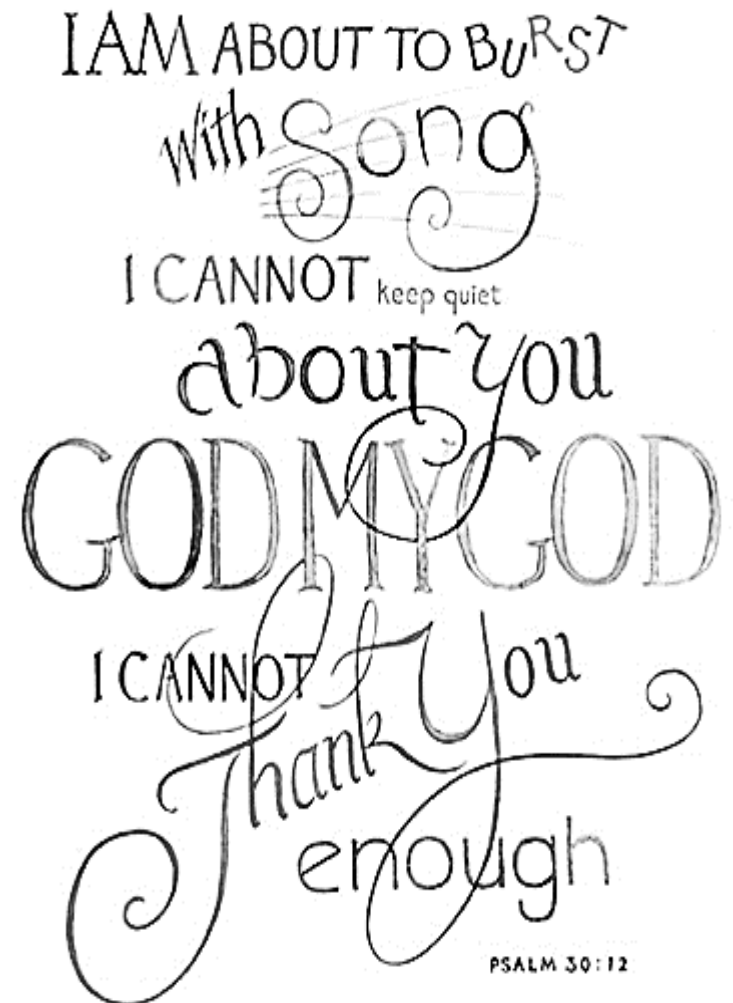 I AM ABOUT TO BURST
with Song
I CANNOT keep quiet
about you
GOD MY GOD
I CANNOT
Thank You
enough
PSALM 30:12